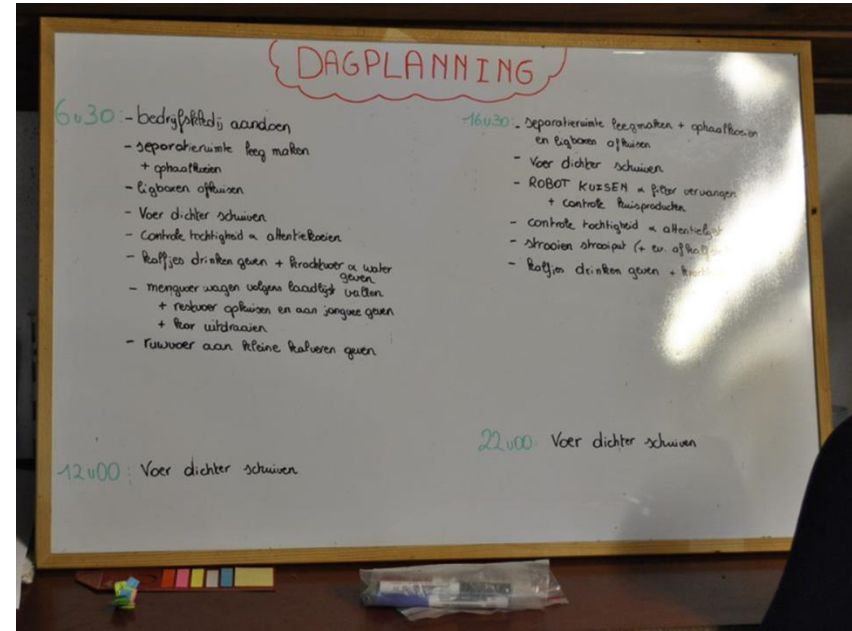 DAGPLANNING
6u30: - bedrijfskledij aandoen
- separatieruimte leeg maken
+ ophaalkoeien
- ligboxen afkuisen
- Voer dichter schuiven
- Controle tochtigheid & attentiekoeien
- kalfjes drinken geven + krachtvoer & water
geven
- mengvoer wagen volgens laadlijst vullen
+ restvoer opkuisen en aan jongvee geven
+ kar uitdraaien
- ruwvoer aan kleine kalveren geven
12u00: Voer dichter schuiven
16u30: - separatieruimte leegmaken + ophaalkoeien
en ligboxen afkuisen
- Voer dichter schuiven
- ROBOT KUISEN & filter vervangen
+ controle kuisproducten
- controle tochtigheid & attentielijst
- strooien strooiput (+ ev.
- kalfjes drinken geven +
22u00: Voer dichter schuiven